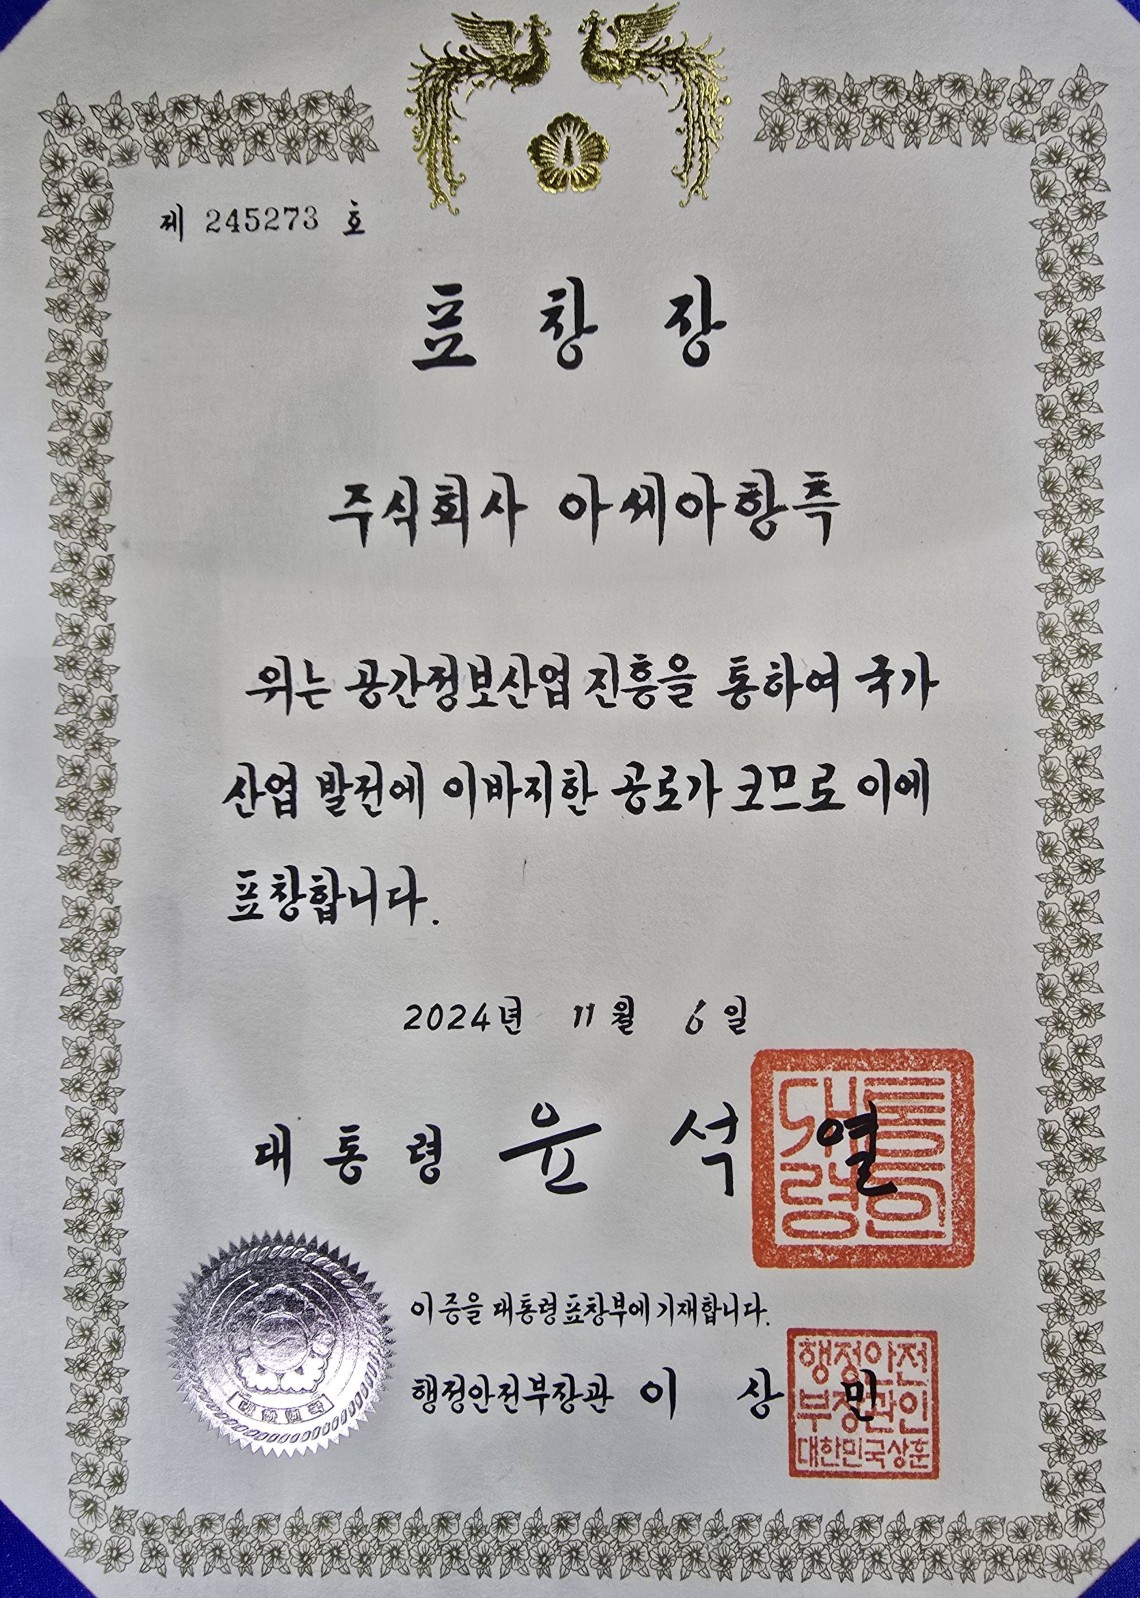 제 245273 호
표 창 장
주식회사 아세아항측
위는 공간정보산업 진흥을 통하여 국가
산업 발전에 이바지한 공로가 크므로 이에
표창합니다.
2024년 11월 6일
대통령 윤 석 열
대통령인
이 증을 대통령표창부에 기재합니다.
행정안전부장관 이 상 민
행정안전
부장관인
대한민국상훈
대한민국